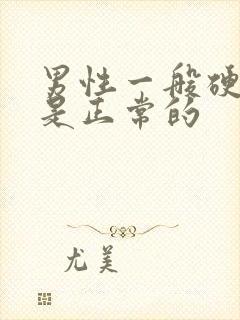 男性一般硬
是正常的
尤美